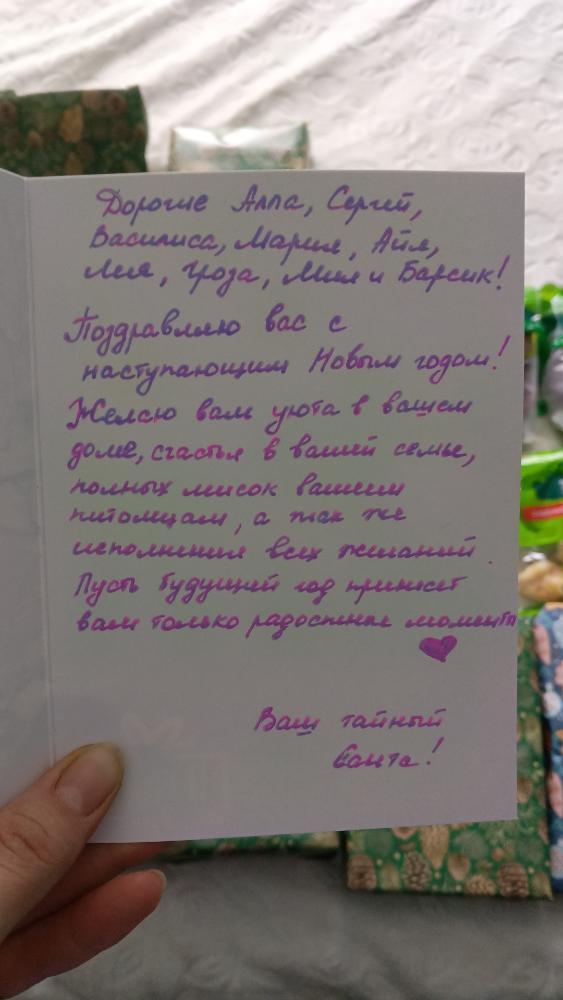 Дорогие Алла, Сергей,
Василиса, Мария, Айя,
Лия, Гроза, Мия и Барсик!
Поздравляю вас с
наступающим Новым годом!
Желаю вам уюта в вашем
доме, счастья в вашей семье,
полных мисок вашим
питомцам, а так же
исполнения всех желаний.
Пусть будущей год принесет
вам только радостные моменты
Ваш тайный
Санта!